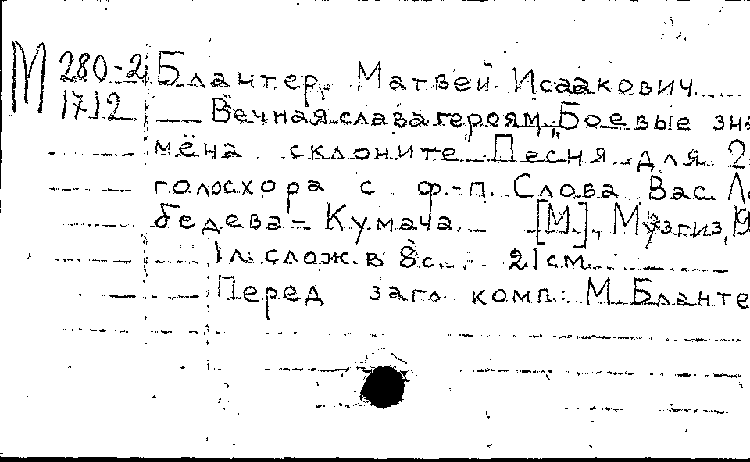 М 280-2 Блантер, Матвей Исаакович
1712 Вечная слава героям. „Боевые зна
мёна склоните. Песня для 2
голос. хора с ф.-п. Слова Вас. Ле
бедева-Кумача. [М], Музгиз, 19
1 л. слож. в 8 с. 21 см.
Перед загл. комп: М Бланте